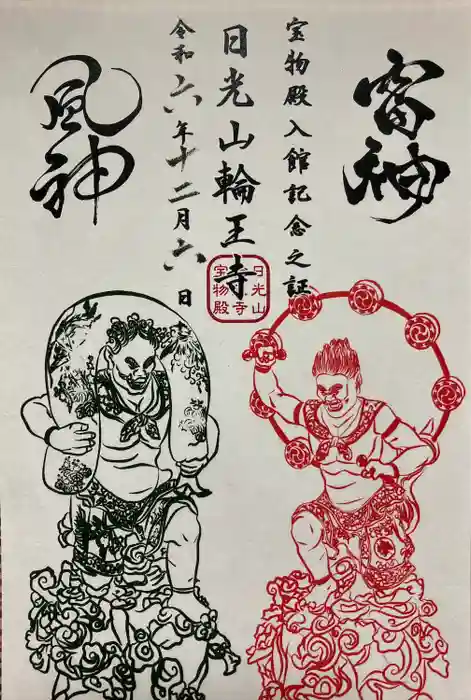 雷神
宝物殿入館記念之証
日光山輪王寺
令和六年十二月六日
風神
日光山
寺
宝物殿